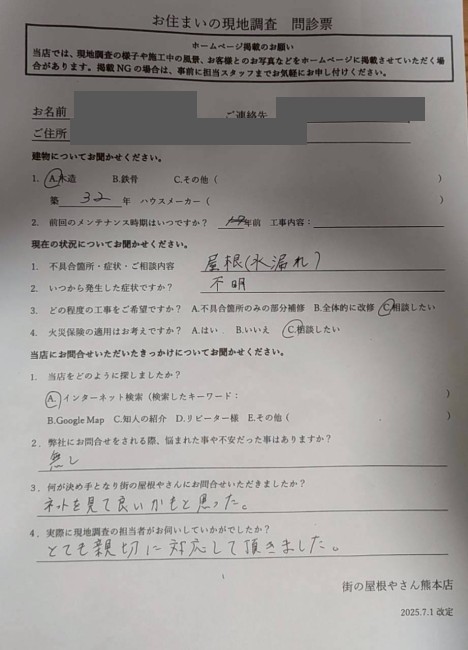 お住まいの現地調査　問診票
ホームページ掲載のお願い
当店では、現地調査の様子や施工中の風景、お客様とのお写真などをホームページに掲載させていただく場
合があります。掲載NGの場合は、事前に担当スタッフまでお気軽にお申し付けください。
お名前　ご連絡先
ご住所
建物についてお聞かせください。
1. A.木造　B.鉄骨　C.その他（　）
築 32 年　ハウスメーカー（　）
2. 前回のメンテナンス時期はいつですか？　年前　工事内容：
現在の状況についてお聞かせください。
1. 不具合箇所・症状・ご相談内容　屋根(水漏れ)
2. いつから発生した症状ですか？　不明
3. どの程度の工事をご希望ですか？　A.不具合箇所のみの部分補修　B.全体的に改修　C.相談したい
4. 火災保険の適用はお考えですか？　A.はい　B.いいえ　C.相談したい
当店にお問合せいただいたきっかけについてお聞かせください。
1. 当店をどのように探しましたか？
A.インターネット検索（検索したキーワード：　）
B.Google Map　C.知人の紹介　D.リピーター様　E.その他（　）
2．弊社にお問合せをされる際、悩まれた事や不安だった事はありますか？
無し
3．何が決め手となり街の屋根やさんにお問合せいただきましたか？
ネットを見て良いかもと思った。
4．実際に現地調査の担当者がお伺いしていかがでしたか？
とても親切に対応して頂きました。
1
街の屋根やさん熊本店
2025.7.1 改定